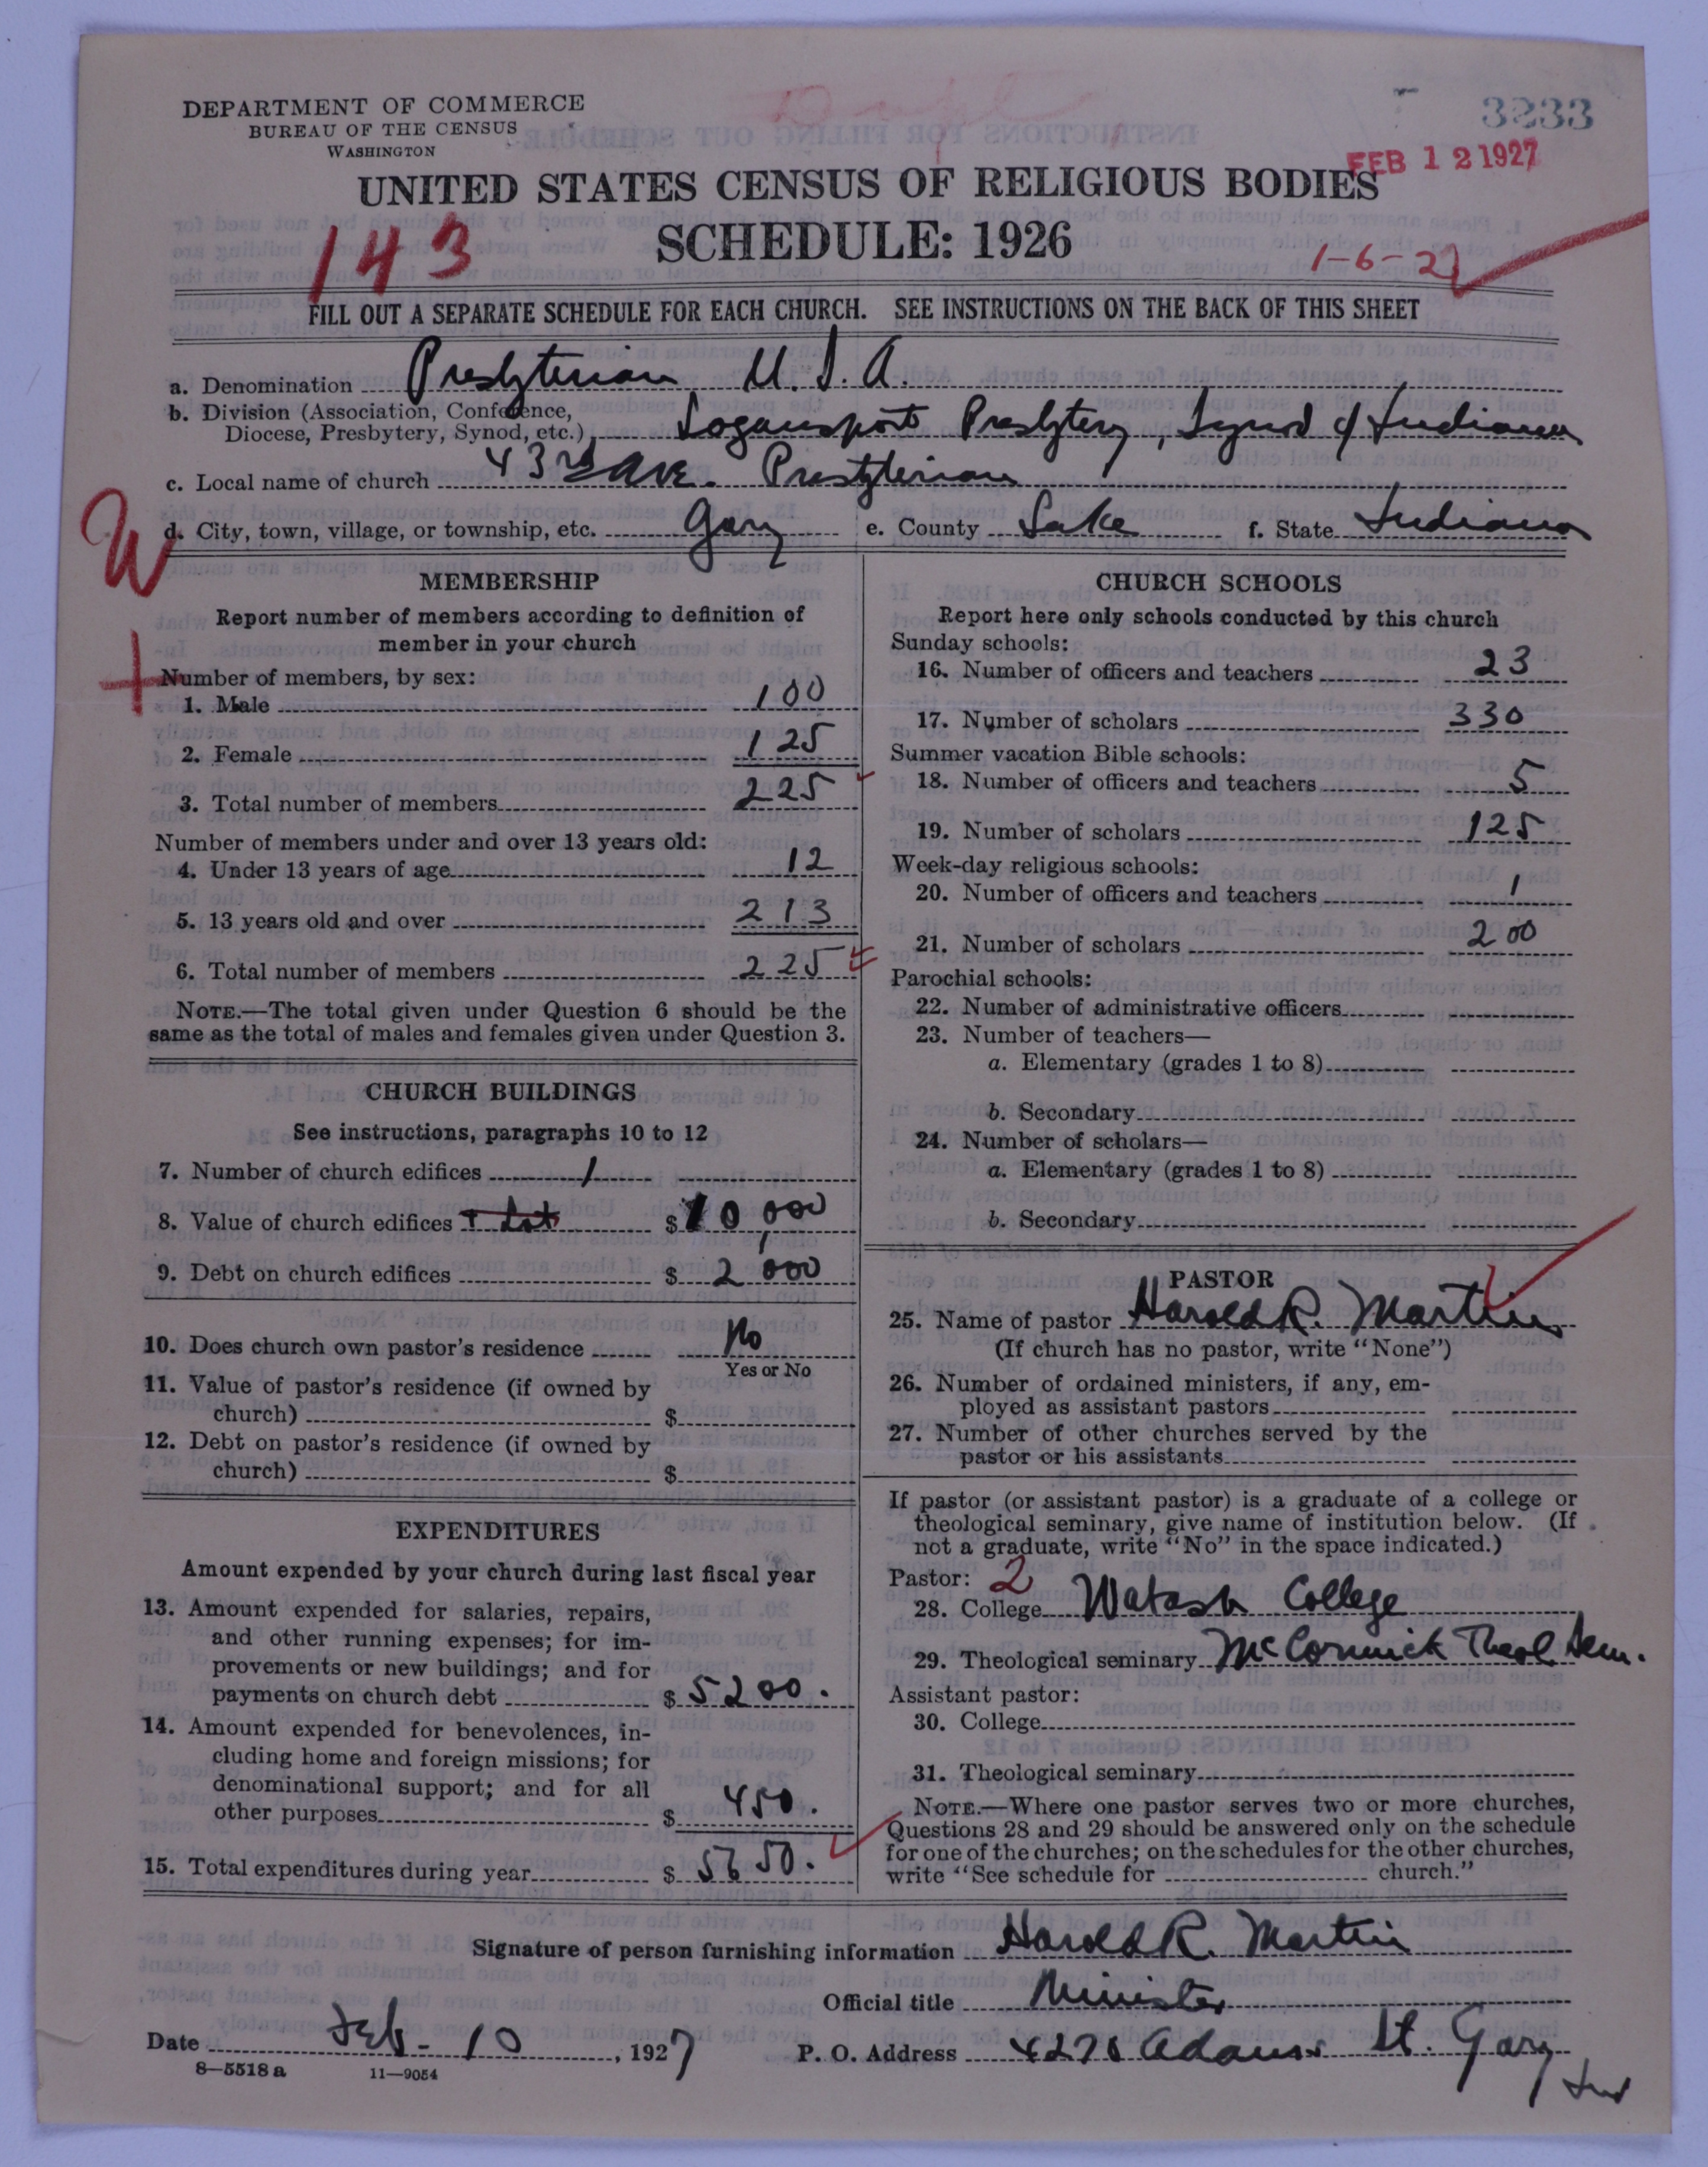 DEPARTMENT OF COMMERCE
BUREAU OF THE CENSUS
WASHINGTON
3833
FEB 12 1927
UNITED STATES CENSUS OF RELIGIOUS BODIES
SCHEDULE: 1926
143
1-6-27
FILL OUT A SEPARATE SCHEDULE FOR EACH CHURCH. SEE INSTRUCTIONS ON THE BACK OF THIS SHEET
a. Denomination Presbyterian U.S.A.
b. Division (Association, Conference,
Diocese, Presbytery, Synod, etc.) Logansport Presbytery, Synod of Indiana
c. Local name of church 43rd Ave. Presbyterian
W
d. City, town, village, or township, etc. Gary e. County Lake f. State Indiana
MEMBERSHIP
Report number of members according to definition of
member in your church
Number of members, by sex:
1. Male 100
2. Female 125
3. Total number of members 225
Number of members under and over 13 years old:
4. Under 13 years of age 12
5. 13 years old and over 213
6. Total number of members 225
NOTE.—The total given under Question 6 should be the
same as the total of males and females given under Question 3.
CHURCH BUILDINGS
See instructions, paragraphs 10 to 12
7. Number of church edifices 1
8. Value of church edifices + Lot $ 10,000
9. Debt on church edifices $ 2,000
10. Does church own pastor's residence No
Yes or No
11. Value of pastor's residence (if owned by
church) $
12. Debt on pastor's residence (if owned by
church) $
EXPENDITURES
Amount expended by your church during last fiscal year
13. Amount expended for salaries, repairs,
and other running expenses; for im-
provements or new buildings; and for
payments on church debt $ 5200.
14. Amount expended for benevolences, in-
cluding home and foreign missions; for
denominational support; and for all
other purposes $ 450.
15. Total expenditures during year $ 5650.
CHURCH SCHOOLS
Report here only schools conducted by this church
Sunday schools:
16. Number of officers and teachers 23
17. Number of scholars 330
Summer vacation Bible schools:
18. Number of officers and teachers 5
19. Number of scholars 125
Week-day religious schools:
20. Number of officers and teachers 1
21. Number of scholars 200
Parochial schools:
22. Number of administrative officers
23. Number of teachers—
a. Elementary (grades 1 to 8)
b. Secondary
24. Number of scholars—
a. Elementary (grades 1 to 8)
b. Secondary
PASTOR
25. Name of pastor Harold R. Martin
(If church has no pastor, write "None")
26. Number of ordained ministers, if any, em-
ployed as assistant pastors
27. Number of other churches served by the
pastor or his assistants
If pastor (or assistant pastor) is a graduate of a college or
theological seminary, give name of institution below. (If
not a graduate, write "No" in the space indicated.)
Pastor: 2
28. College Wabash College
29. Theological seminary McCormick Theol. Sem.
Assistant pastor:
30. College
31. Theological seminary
NOTE.—Where one pastor serves two or more churches,
Questions 28 and 29 should be answered only on the schedule
for one of the churches; on the schedules for the other churches,
write "See schedule for church."
Signature of person furnishing information Harold R. Martin
Official title Minister
Date Feb. 10, 1927 P. O. Address 4270 Adams St. Gary
Ind
8—5518 a 11—9054